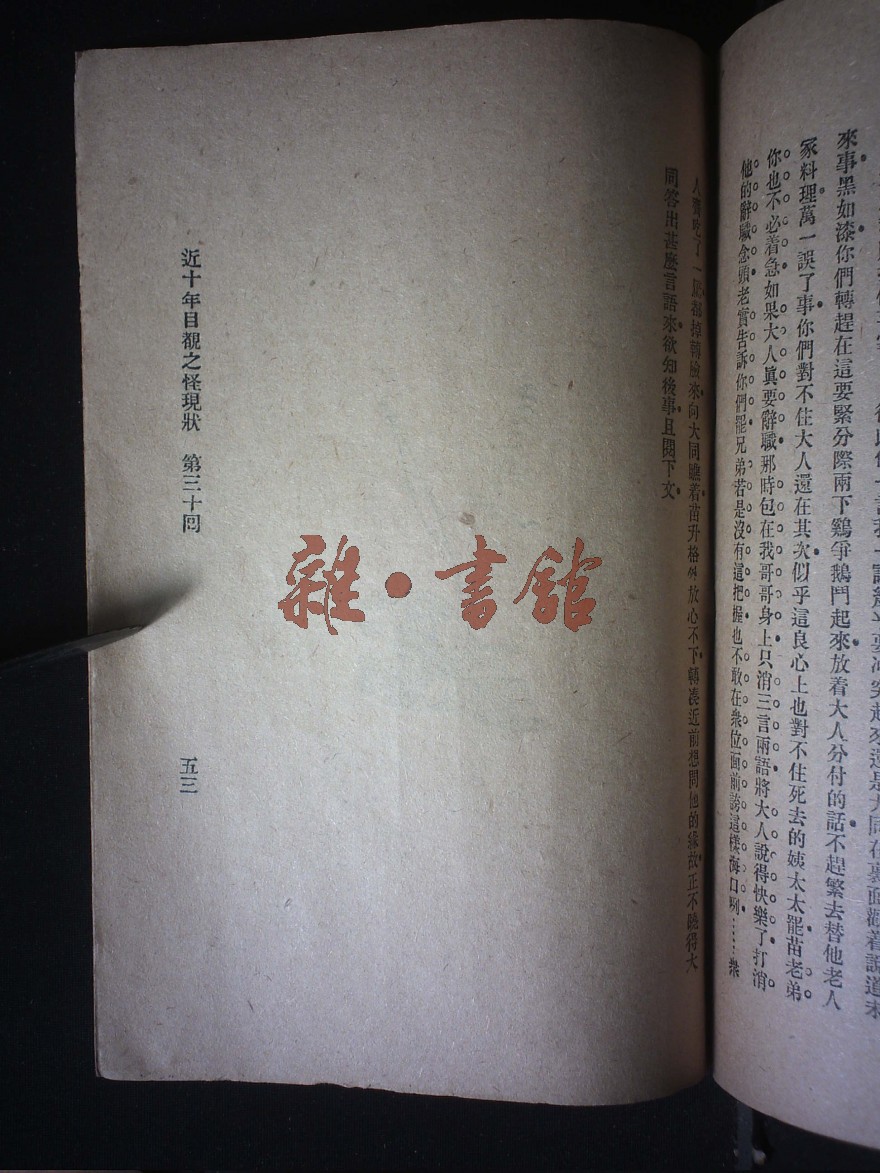 來事黑如漆你們轉趕在這要緊分際兩下鷄爭鵝鬥起來放着大人分付的話不趕緊去替他老人
家料理萬一誤了事你們對不住大人還在其次似乎這良心上也對不住死去的姨太太罷苗老弟
你也不必着急如果大人眞要辭職那時包在我哥哥身上只消三言兩語將大人說得快樂了打消
他的辭職念頭老實告訴你們罷兄弟若是沒有這把握也不敢在衆位面前誇這樣海口咧……衆
人齊吃了一驚都掉轉臉來向大同瞧着苗升格外放心不下轉湊近前想問他的緣故正不曉得大
同答出甚麽言語來欲知後事且閱下文
近十年目覩之怪現狀　第三十回
五三
雜·書館